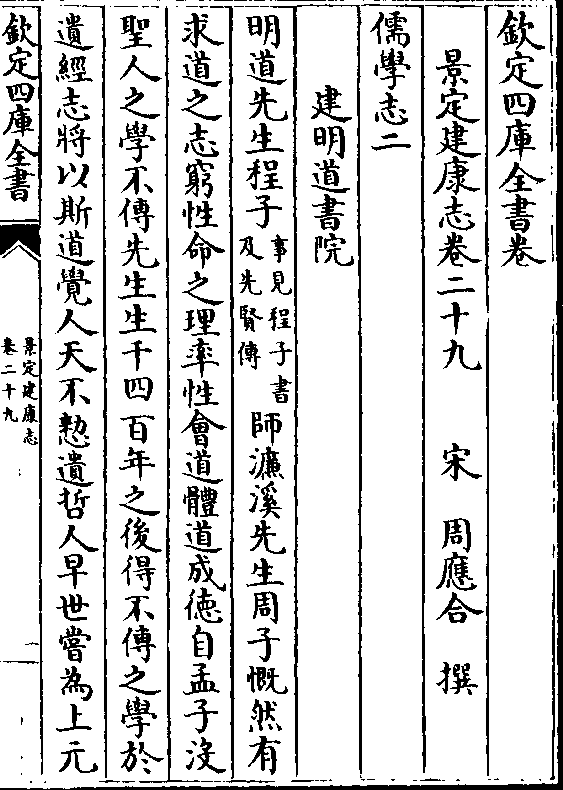 欽定四庫全書卷
景定建康志卷二十九　宋　周應合　撰
儒學志二
建明道書院
明道先生程子事見程子書及先賢傳師濂溪先生周子慨然有
求道之志窮性命之理率性會道體道成徳自孟子沒
聖人之學不傳先生生千四百年之後得不傳之學於
遺經志將以斯道覺人天不憗遺哲人早世嘗為上元
欽定四庫全書
景定建康志
卷二十九
一